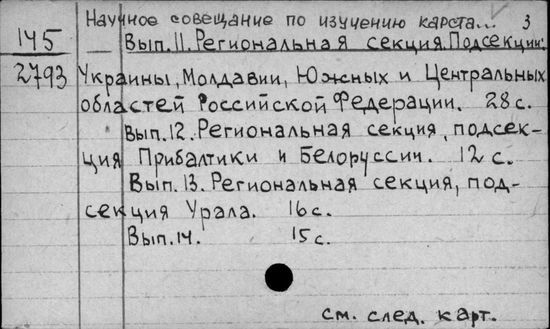 Научное совещание по изучению карста... 3
145 Вып. 11. Региональная секция. Подсекции:
2793 Украины, Молдавии, Южных и Центральных
областей Российской Федерации. 28 с.
Вып. 12. Региональная секция, подсек-
ция Прибалтики и Белоруссии. 12 с.
Вып. 13. Региональная секция, под-
секция Урала. 16 с.
Вып. 14. 15 с.
см. след. карт.